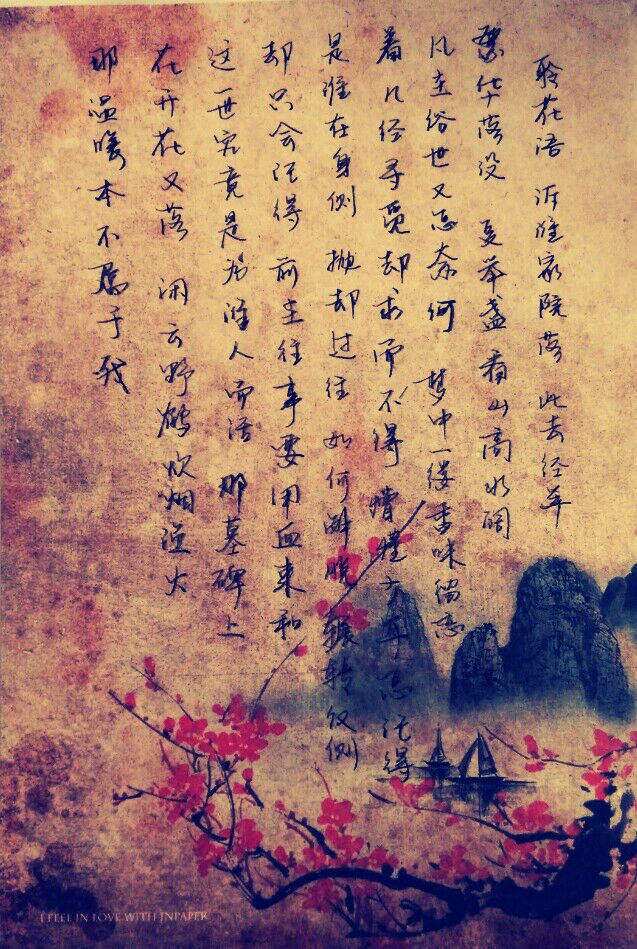 聆花语 诉谁家院落 此去经年
繁华落没 更举盏 看山高水阔
凡尘俗世又怎奈何 梦中一缕香味留恋
着几经寻觅却求而不得 懵懂少年忘记得
是谁在身侧 抛却过往 如何解脱 辗转反侧
却只会记得 前尘往事要用血来和
这一世究竟是为谁人而活 那墓碑上
花开花又落 闲云野鹤炊烟渔火
那温暖本不属于我
I FEEL IN LOVE WITH JNPAPER